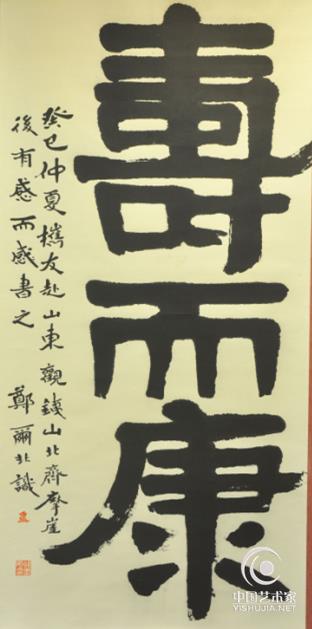 壽而康
癸巳仲夏攜友赴山東觀鐵山北齊摩崖
後有感而感書之 鄭爾非識
中国艺术家
YISHUJIA.NET